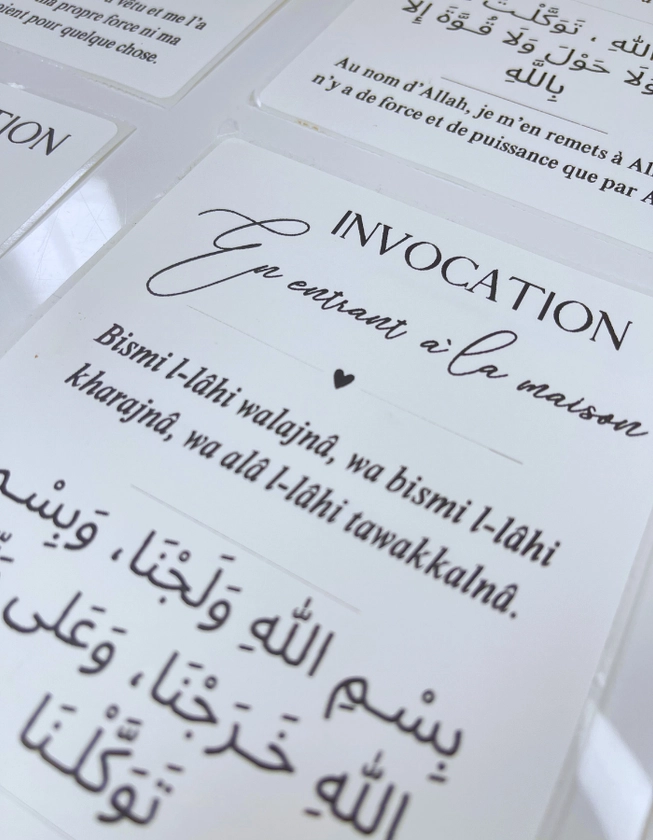 vêtu et me l'a
propre force ni ma
pour quelque chose.
الله ، تَوَكَّلْتُ
وَلَا حَوْلَ وَلَا قُوَّةَ إِلَّا
بِاللَّهِ
Au nom d'Allah, je m'en remets à
n'y a de force et de puissance que par
INVOCATION
En entrant à la maison
Bismi l-lâhi walajnâ, wa bismi l-lâhi
kharajnâ, wa alâ l-lâhi tawakkalnâ.
بِسْمِ اللهِ وَلَجْنَا، وَبِسْمِ
اللهِ خَرَجْنَا، وَعَلى
تَوَكَّلْنَا